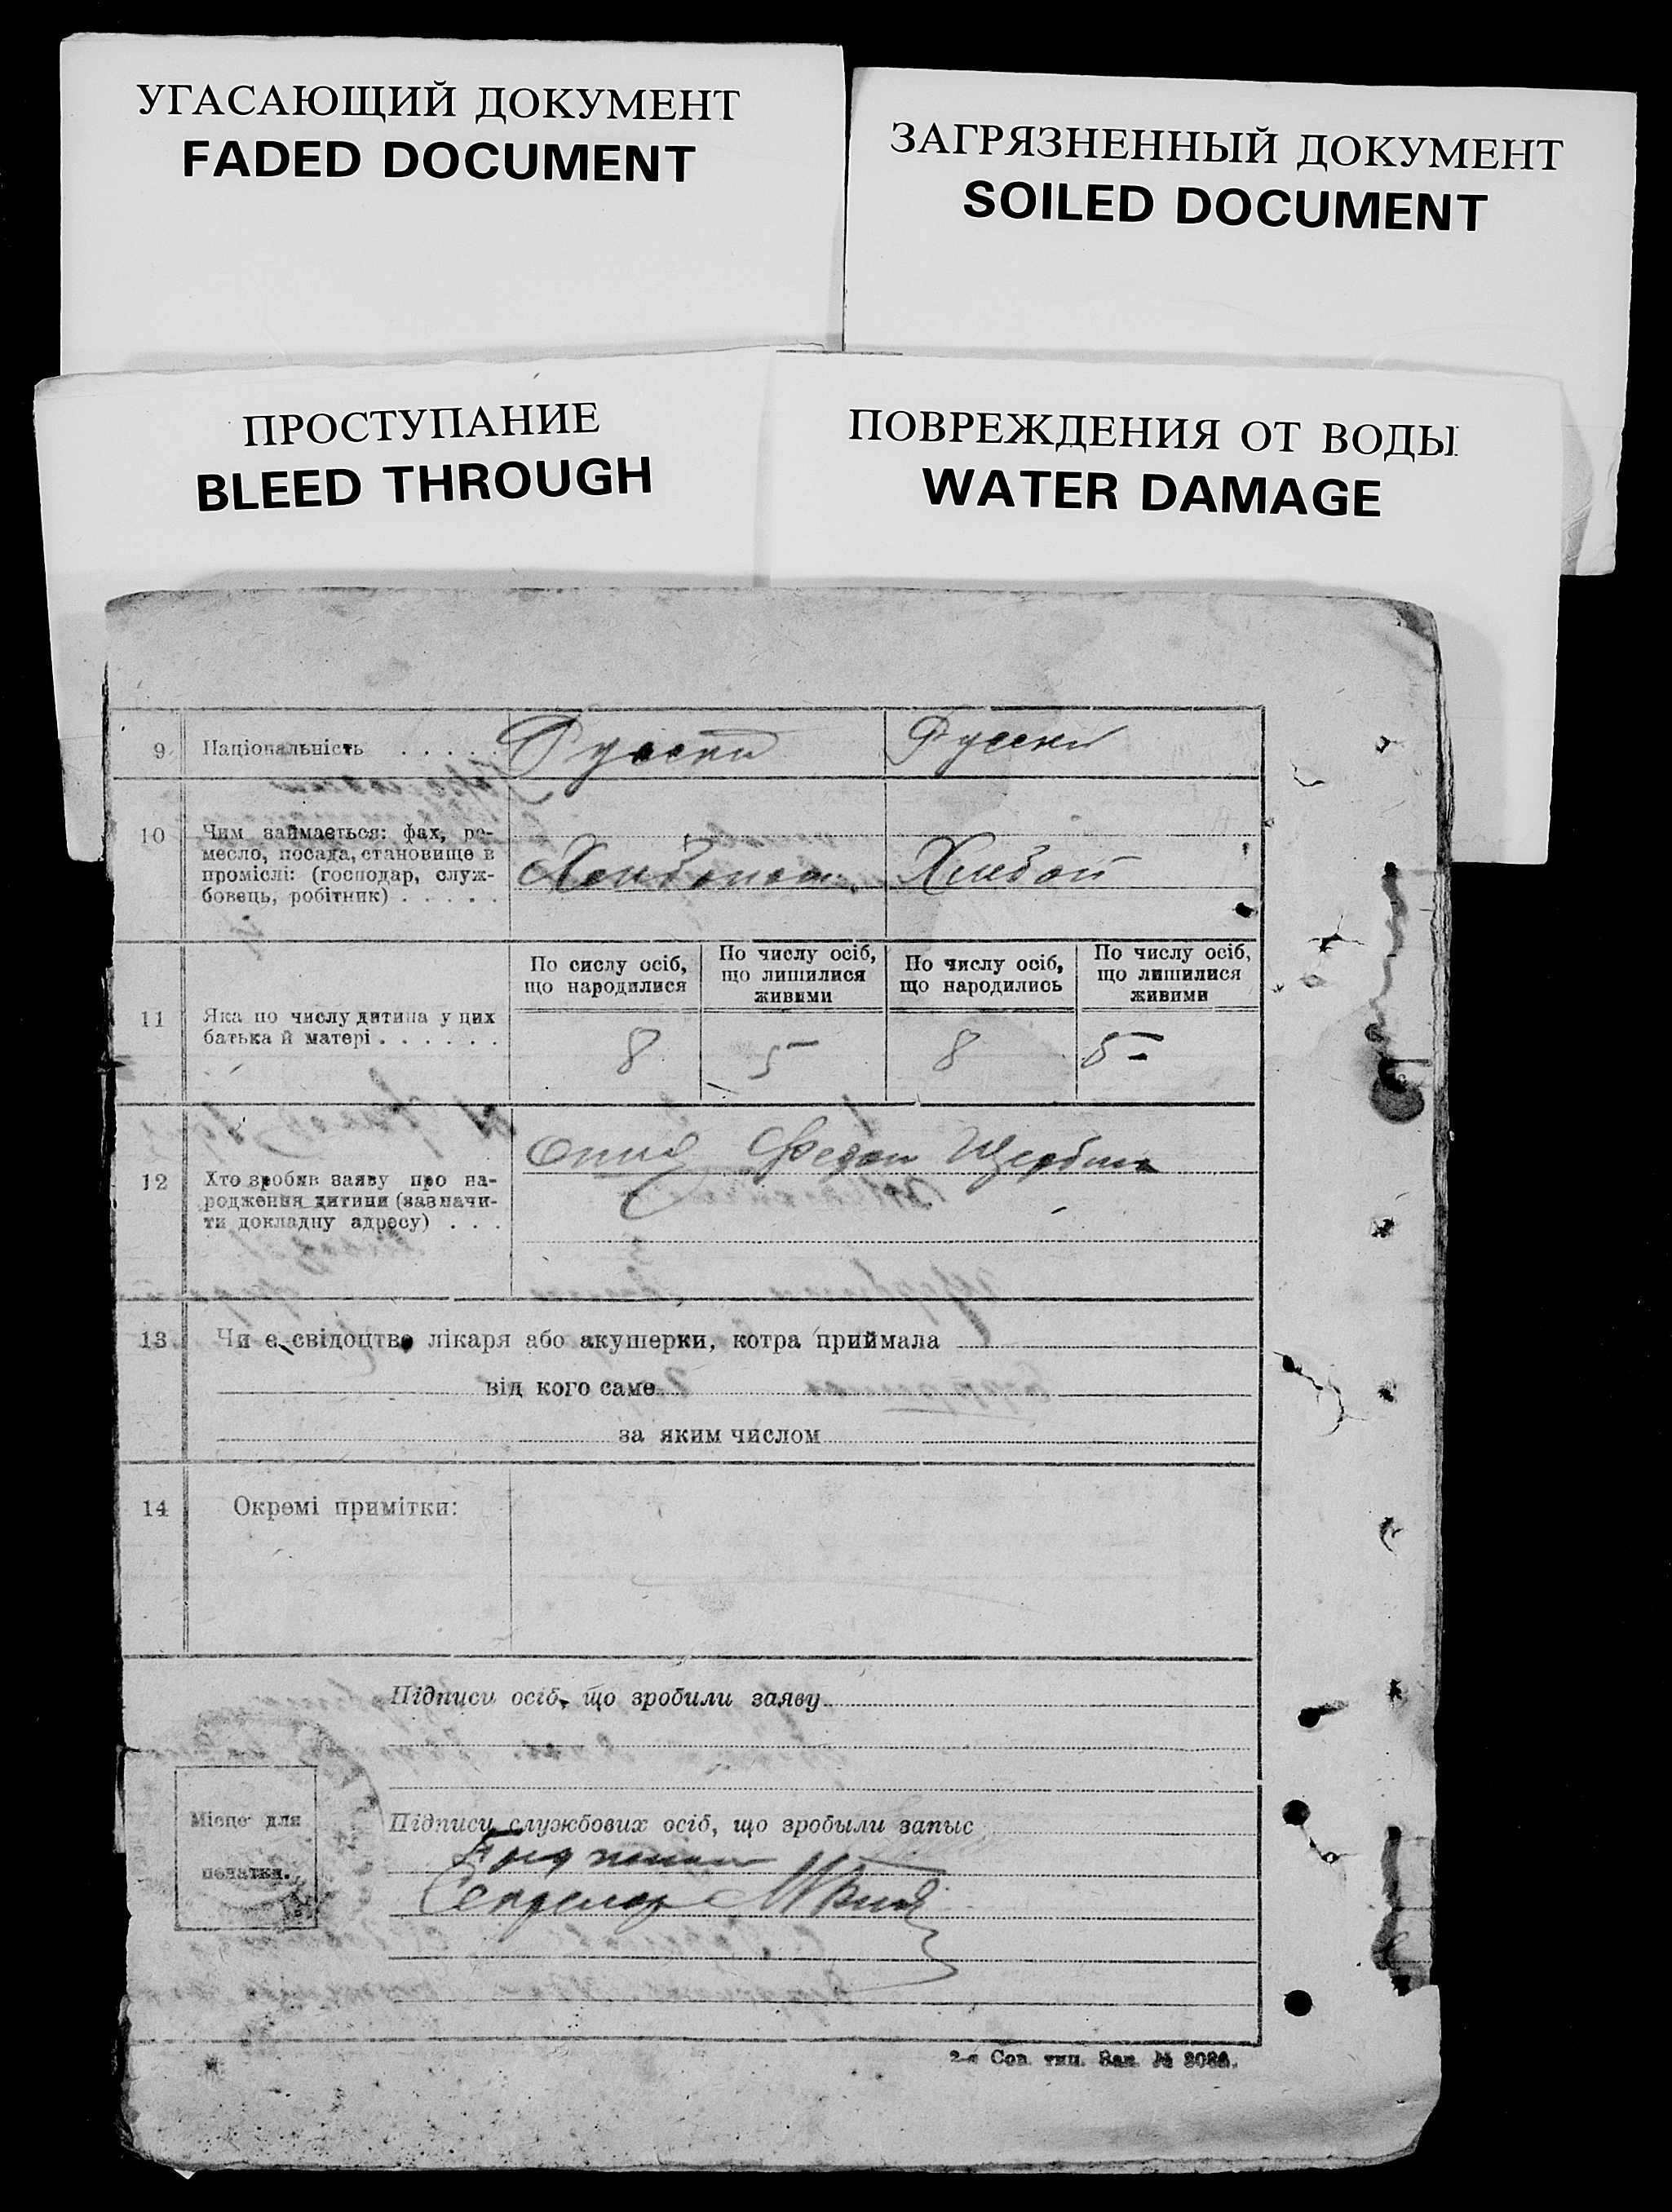 УГАСАЮЩИЙ ДОКУМЕНТ
FADED DOCUMENT
ЗАГРЯЗНЕННЫЙ ДОКУМЕНТ
SOILED DOCUMENT
ПРОСТУПАНИЕ
BLEED THROUGH
ПОВРЕЖДЕНИЯ ОТ ВОДЫ
WATER DAMAGE
9 Національність . . . . . Русски Русски
10 Чим займається: фах, ре-
месло, посада, становище в
промислі: (господар, служ-
бовець, робітник) . . . . .
Хлибопаш. Хлибоп
По сислу осіб,
що народилися
По числу осіб,
що лишилися
живими
По числу осіб,
що народились
По числу осіб,
що лишилися
живими
11 Яка по числу дитина у цих
батька й матері . . . . . .
8 5 8 5
12 Хто зробив заяву про на-
родження дитини (зазначи-
ти докладну адресу) . . .
Отец Федор Щербина
13 Чи є свідоцтво лікаря або акушерки, котра приймала
від кого саме
за яким числом
14 Окремі примітки:
Підписи осіб, що зробили заяву
Місце для
печатки.
Підписи службових осіб, що зробыли запыс
Секретарь
2-я Сов. тип. Зак. №